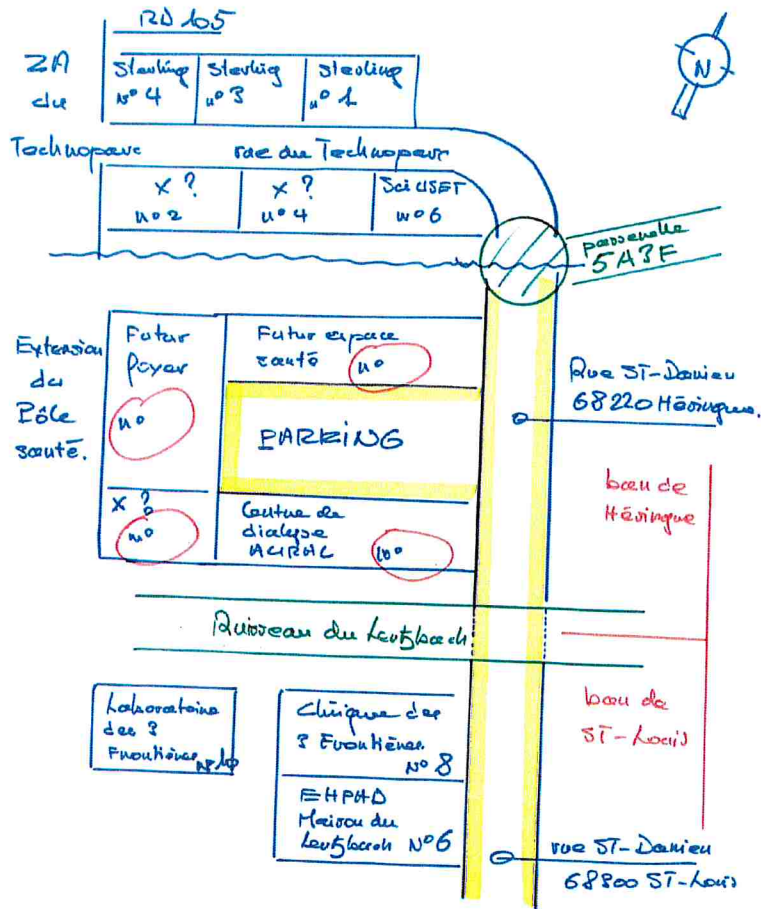 RD 105
ZA
du
Technoparc
Sterling
n° 4
Sterling
n° 3
Sterling
n° 1
rue du Technoparc
X ?
n° 2
X ?
n° 4
Sci USET
n° 6
N
passerelle
5A3F
Extension
du
Pôle
santé.
Futur
Foyer
n°
Futur espace
santé n°
PARKING
X ?
n°
Centre de
dialyse
AURAL n°
Rue ST-Damien
68220 Hésingue.
ban de
Hésingue
Ruisseau du Lertzbach
ban de
ST-Louis
Laboratoire
des 3
Frontières N° 10
Clinique des
3 Frontières
N° 8
EHPAD
Maison du
Lertzbach N° 6
rue ST-Damien
68300 ST-Louis